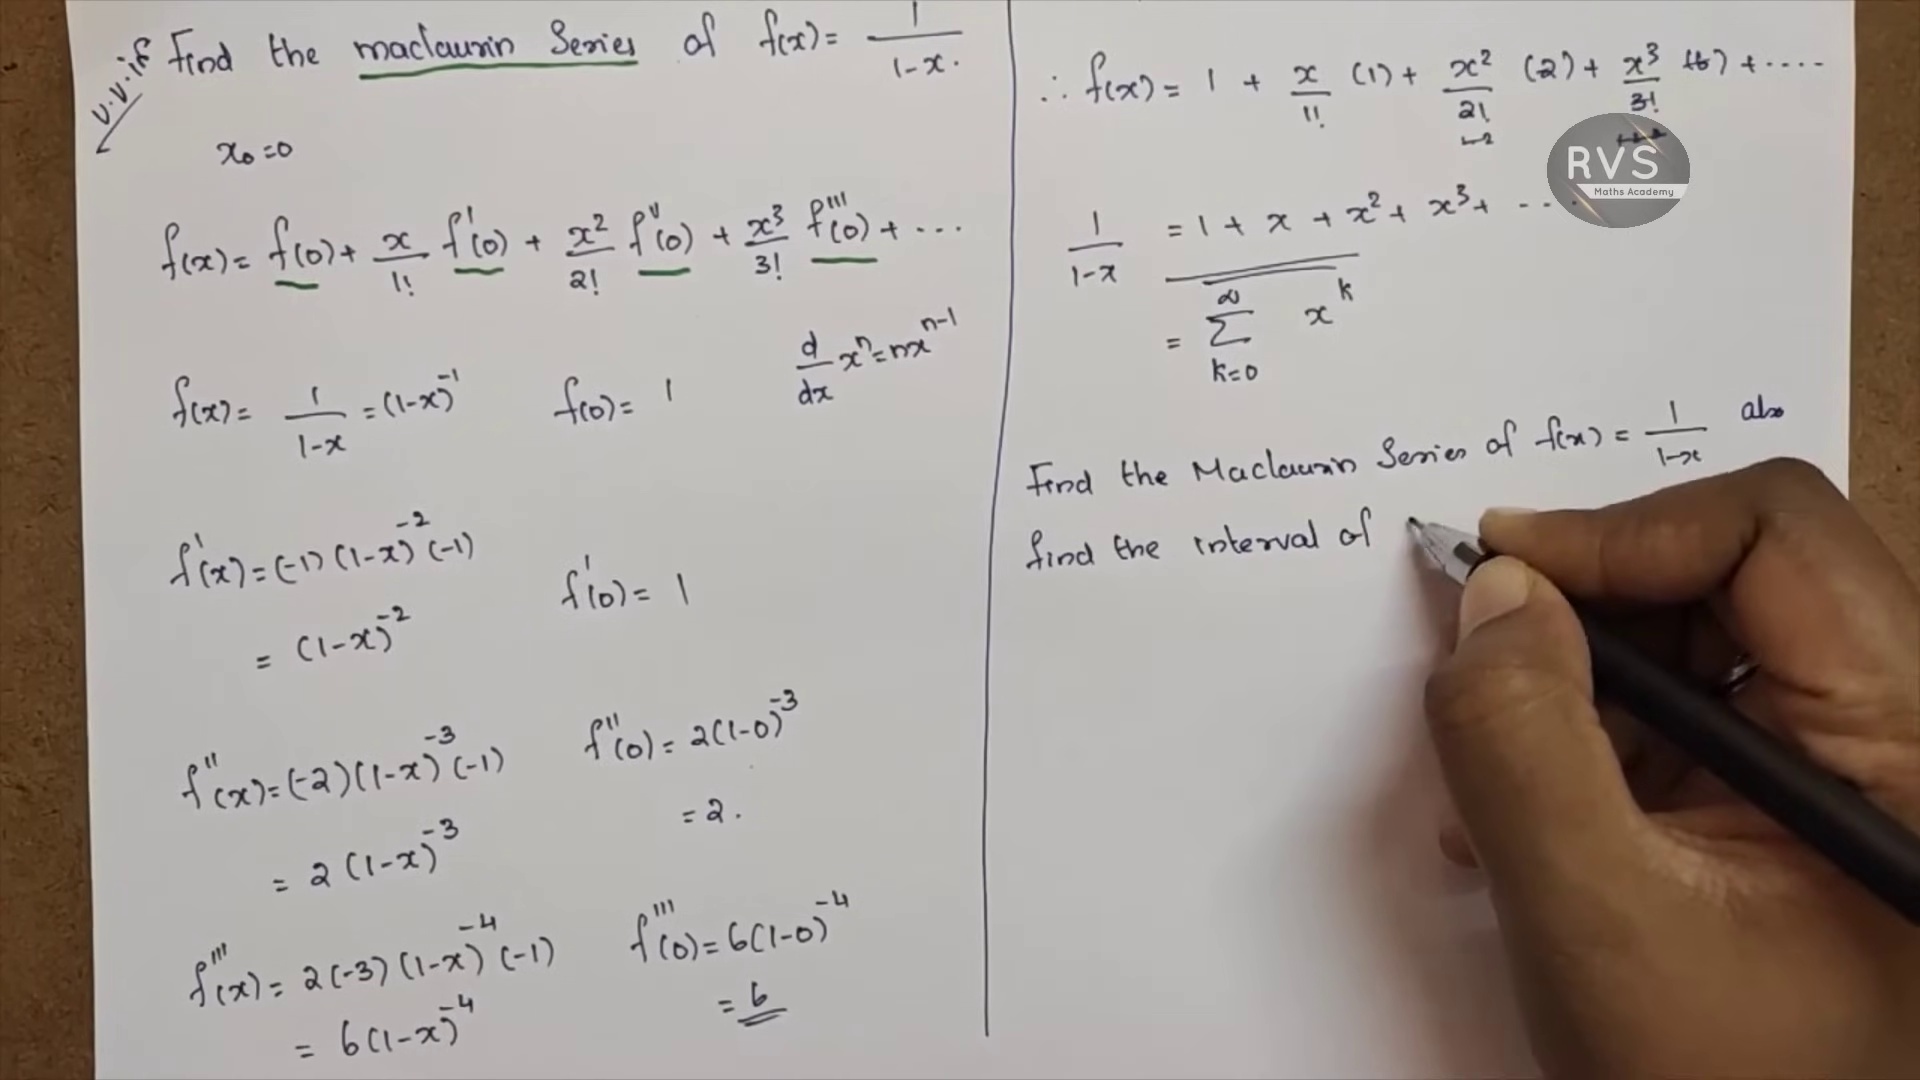 v.v.if Find the maclaurin Series of f(x) = 1/1-x.
x₀=0
f(x) = f(0) + x/1! f'(0) + x²/2! f''(0) + x³/3! f'''(0) + ...
d/dx xⁿ = nxⁿ⁻¹
f(x) = 1/1-x = (1-x)⁻¹ f(0) = 1
f'(x) = (-1) (1-x)⁻² (-1)
= (1-x)⁻² f'(0) = 1
f''(x) = (-2) (1-x)⁻³ (-1) f''(0) = 2(1-0)⁻³
= 2 (1-x)⁻³ = 2.
f'''(x) = 2(-3) (1-x)⁻⁴ (-1) f'''(0) = 6(1-0)⁻⁴
= 6(1-x)⁻⁴ = 6
∴ f(x) = 1 + x/1! (1) + x²/2! (2) + x³/3! (6) + ....
RVS
Maths Academy
1/1-x = 1 + x + x² + x³ + ...
= ∞ Σ k=0 xᵏ
Find the Maclaurin Series of f(x) = 1/1-x also
find the interval of